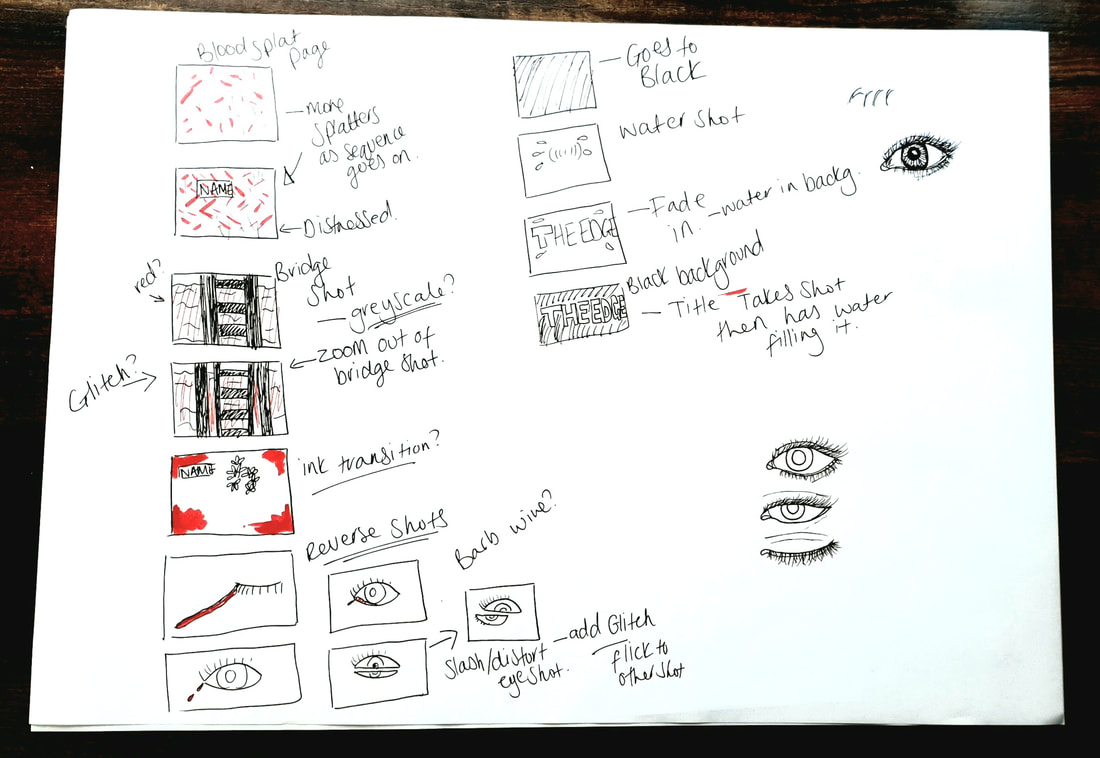 Blood Splat
Page
—More
Splatters
as sequence
goes on.
NAME
Distressed.
red?
Bridge
Shot
—greyscale?
Glitch?
—Zoom out of
bridge shot.
NAME
ink transition?
Reverse Shots
Barb wire?
Slash/distort
eye shot.
—add Glitch
flick to
other shot
—Goes to
Black
Water Shot
THE EDGE
—Fade
in.
—water in backg.
Black background
THE EDGE
—Title Takes Shot
then has water
filling it.